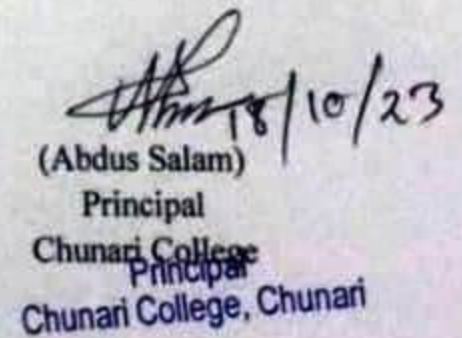 18/10/23
(Abdus Salam)
Principal
Chunari College
Principal
Chunari College, Chunari